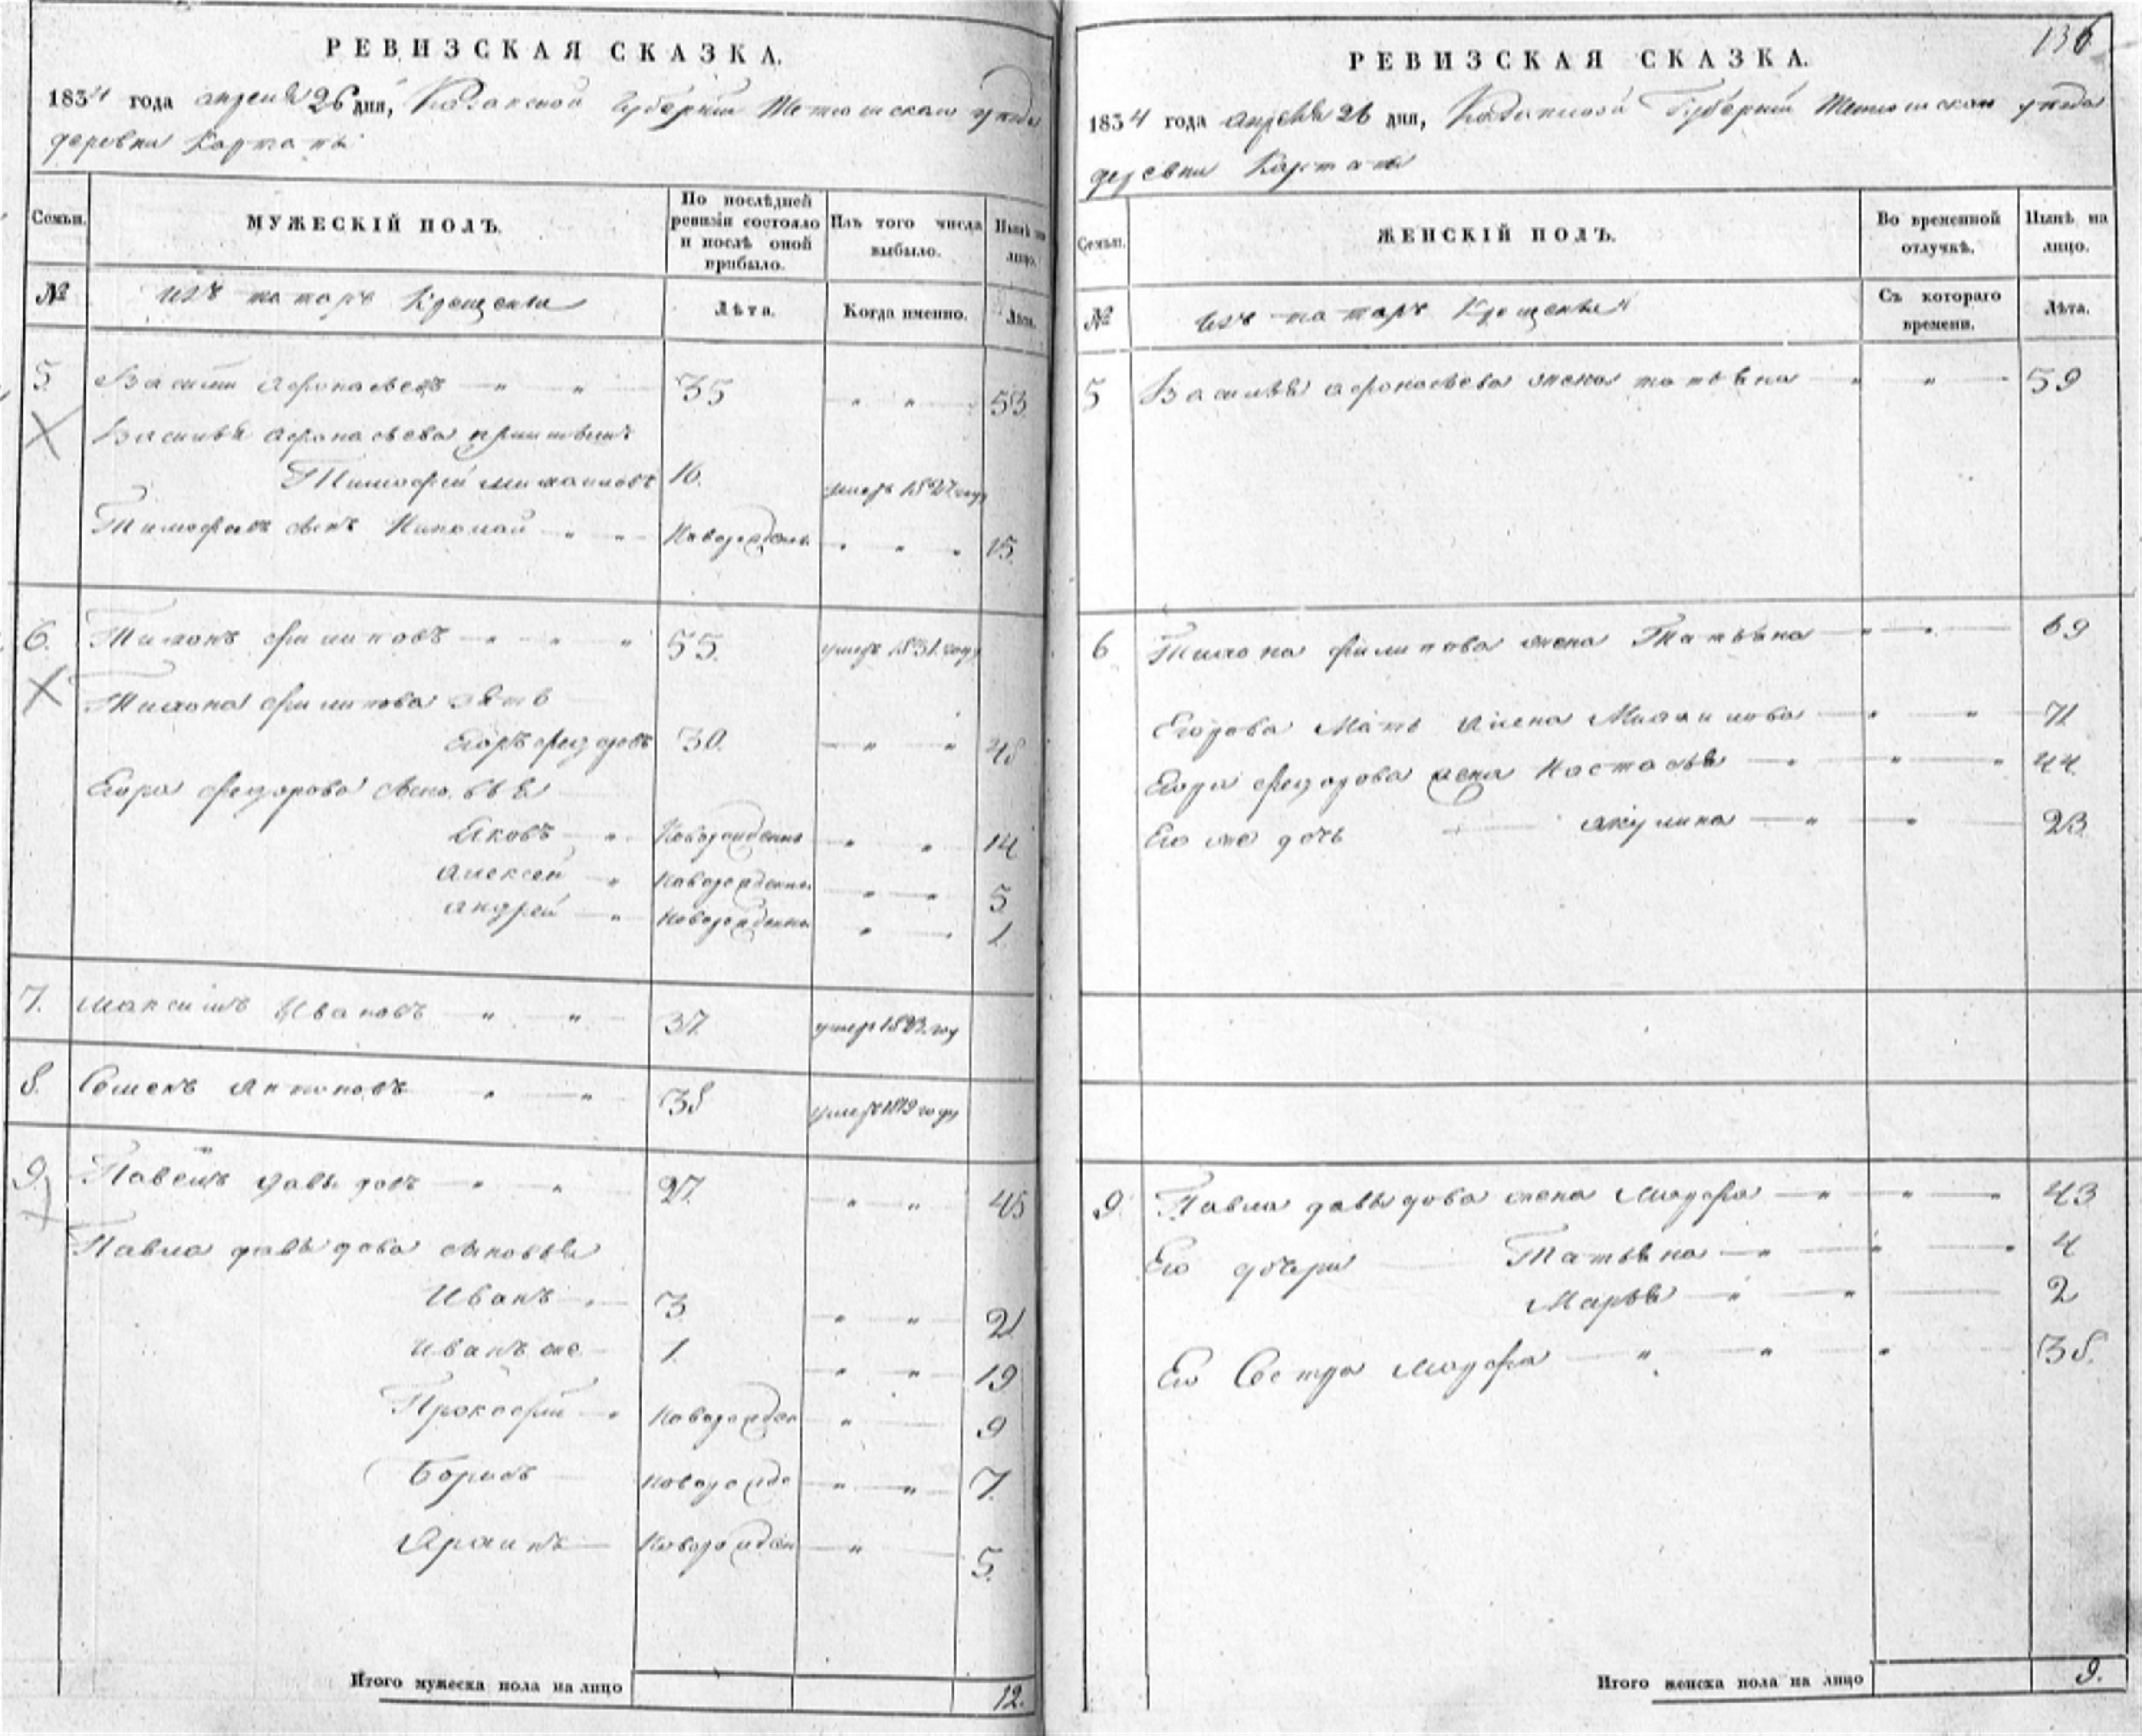 РЕВИЗСКАЯ СКАЗКА.
1834 года апреля 26 дня, Казанской Губернии Тетюшскаго уезда
деревни Картапы
Семьи. МУЖЕСКІЙ ПОЛЪ. По послѣдней ревизіи состояло и послѣ оной прибыло. Изъ того числа выбыло. Нынѣ на лицо.
№ изъ татаръ Крещеныя Лѣта. Когда именно. Лѣта.
5. Василий Афонасьевъ " " 35 " " 53.
Василья Афонасьева
Тимофей Михайловъ 16. умеръ 1827 году
Тимофея сынъ Николай " " Новорожденъ " " " 15.
6. Тимонъ Филиповъ " " " 55. умеръ 1831. году
Тимона Филипова зять
Егоръ Федоровъ 30. " " 48
Егора Федорова сыновья
Яковъ " Новорожденны " " 14
Алексей " Новорожденны " " 5
Андрей " Новорожденны " " 1
7. Максимъ Ивановъ " " 37. умеръ 1823. году
8. Семенъ Антоновъ " " 38 умеръ 1819 году
9. Павелъ Давыдовъ " " 27. " " 45
Павла Давыдова сыновья
Иванъ " 3 " " 21
Иванъ же 1. " " 19
Прокофий " Новорожден " 9
Борисъ Новорожде " " 7.
Новорожден " 5.
Итого мужеска пола на лицо 12.
136
РЕВИЗСКАЯ СКАЗКА.
1834 года апреля 26 дня, Казанской Губернии Тетюшскаго уезда
деревни Картапы
Семьи. ЖЕНСКІЙ ПОЛЪ. Во временной отлучкѣ. Нынѣ на лицо.
№ изъ татаръ Крещеныя Съ котораго времени. Лѣта.
5 Василья Афонасьева жена Татьяна " " 59
6 Тимона Филипова жена Татьяна " " 69
Егорова Мать Алена Михайлова " " 71
Егора Федорова жена Настасья " " " 44
Его же дочь Акулина " " 23
9 Павла Давыдова жена Марфа " " " 43
Его дочери Татьяна " " " 4
Марья " " 2
Его Сестра Марфа " " " 38.
Итого женска пола на лицо 9.